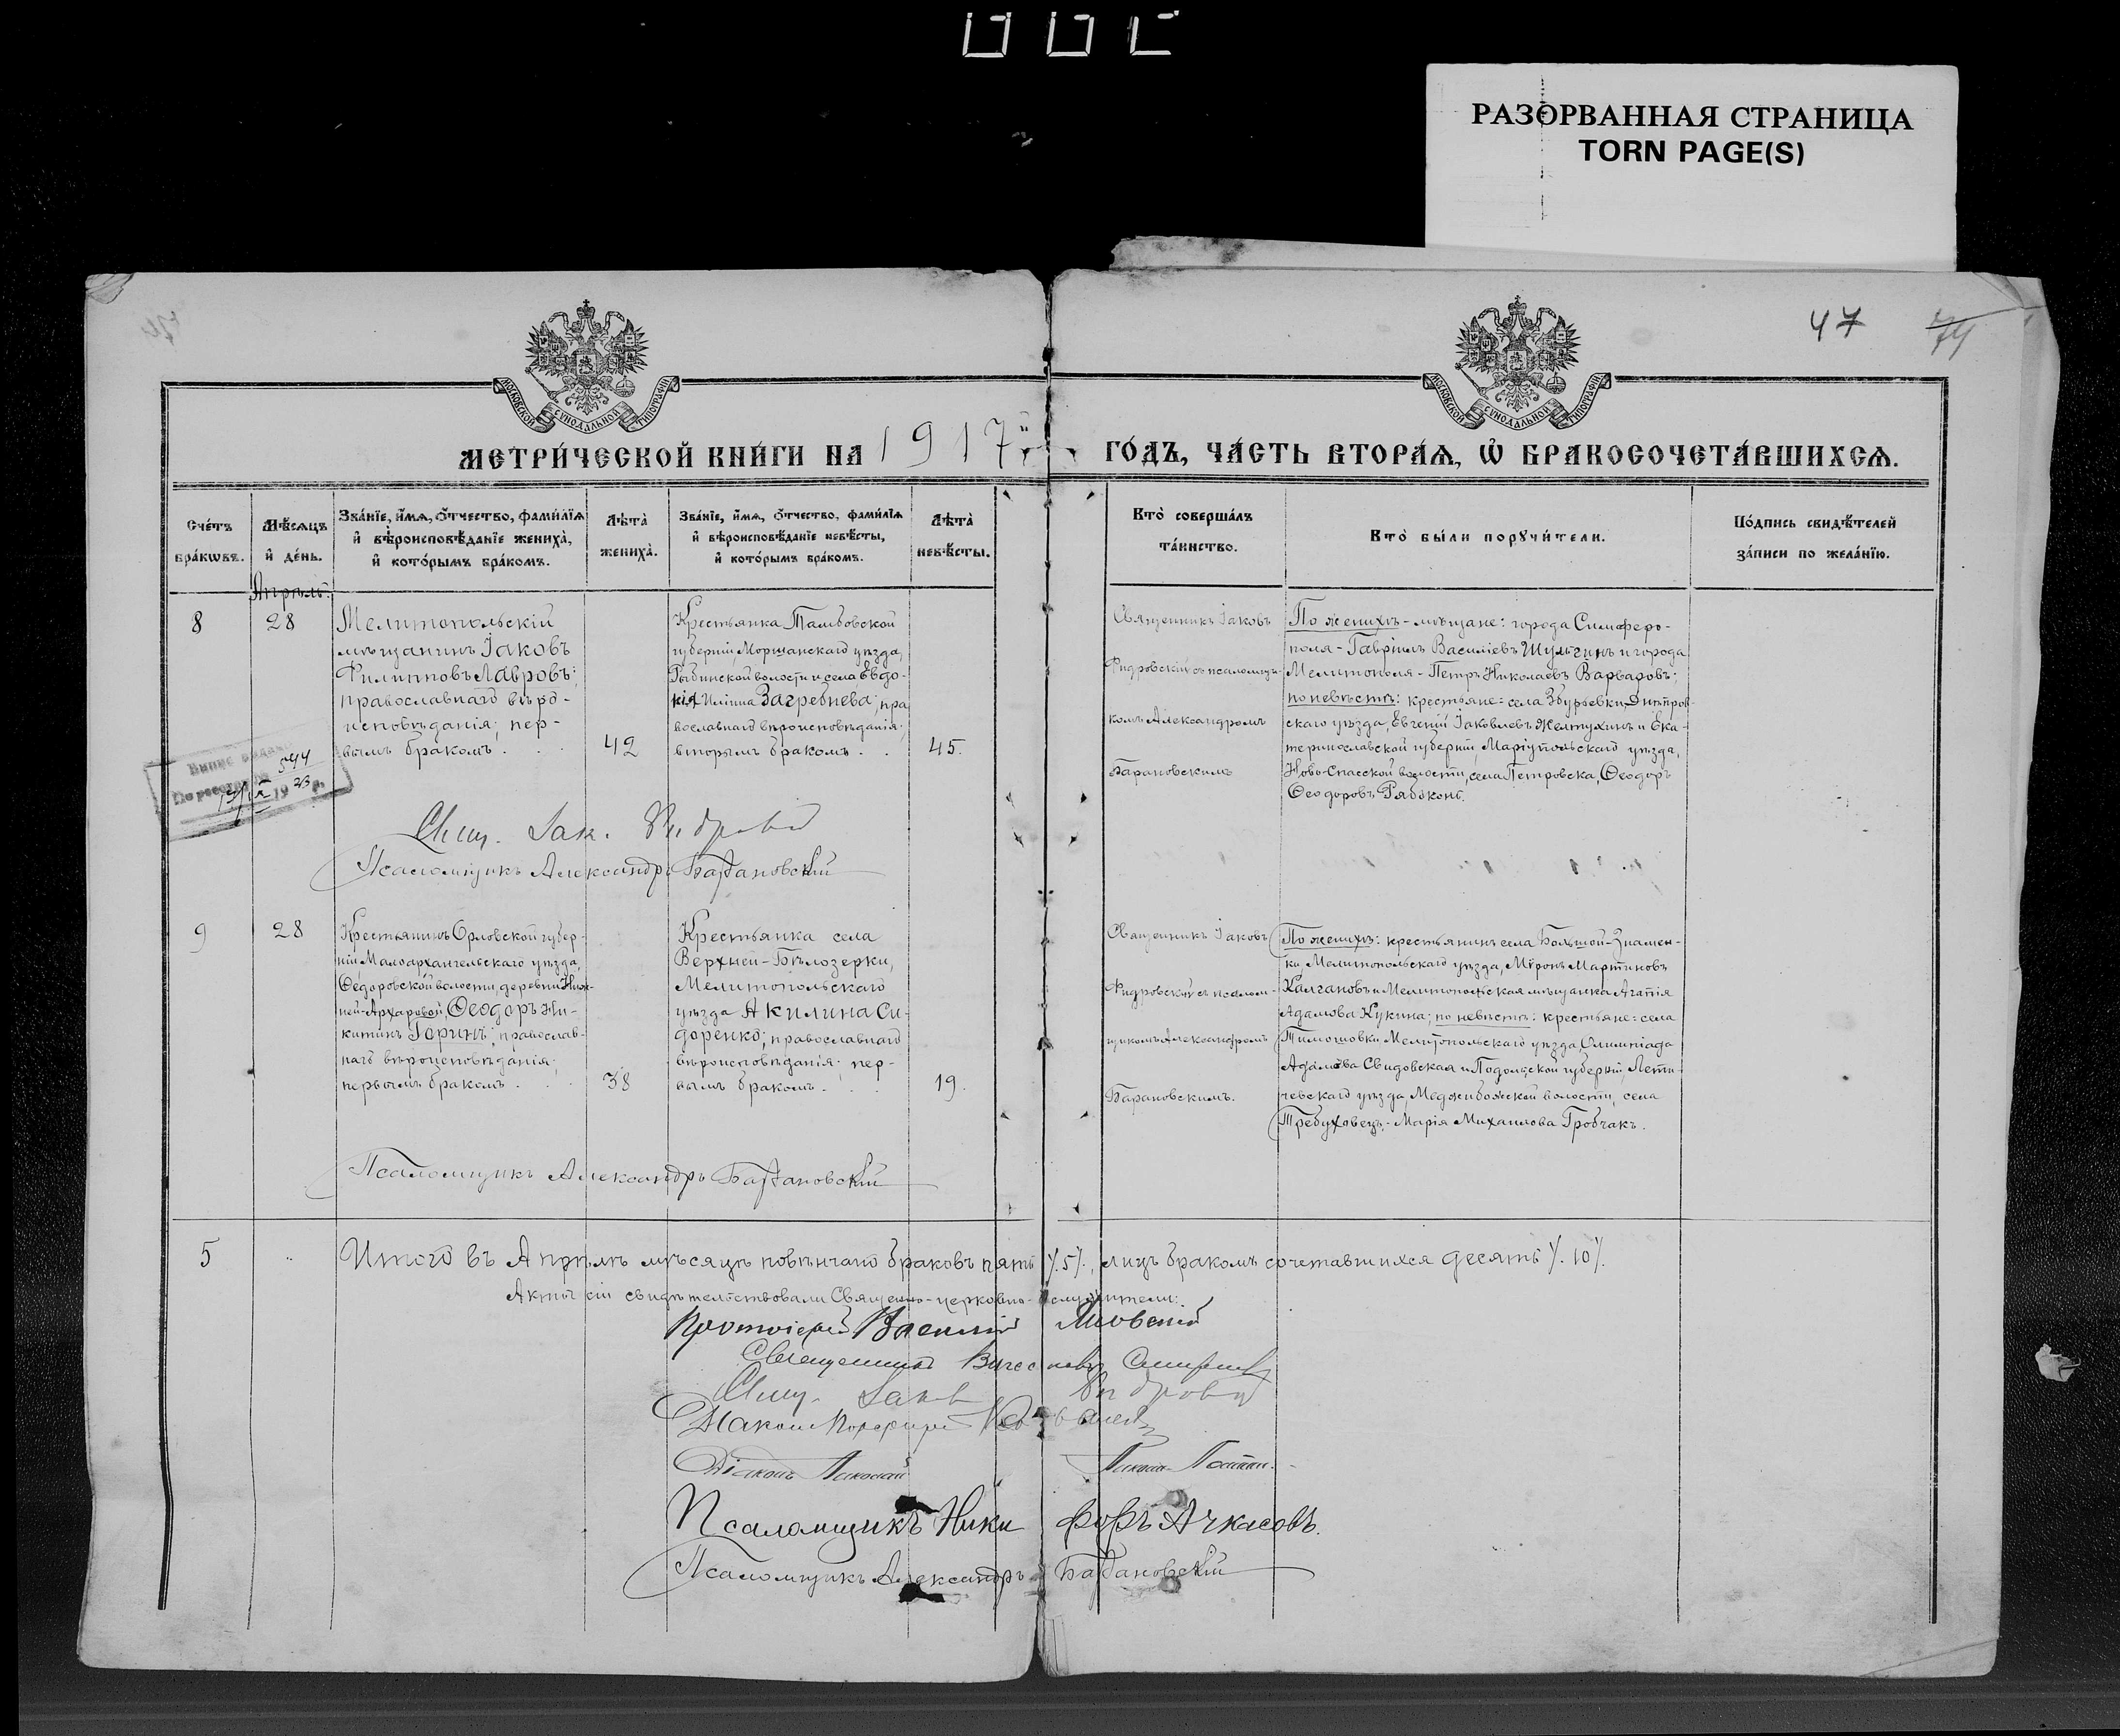 РАЗОРВАННАЯ СТРАНИЦА
TORN PAGE(S)
47 74
МОСКОВСКОЙ СѴНОДАЛЬНОЙ ТИПОГРАФІИ
МОСКОВСКОЙ СѴНОДАЛЬНОЙ ТИПОГРАФІИ
МЕТРИ́ЧЕСКОЙ КНИ́ГИ НА 1917 й ГО́ДЪ, ЧА́СТЬ ВТОРА́Ѧ, Ѡ҆ БРАКОСОЧЕТА́ВШИХСѦ.
Сче́тъ бра́кѡвъ.
Мѣ́сѧцъ и҆ де́нь.
Зва́нїе, и҆́мѧ, ѻ҆́тчество, фами́лїѧ и҆ вѣроисповѣ́данїе жениха̀, и҆ кото́рымъ бра́комъ.
Лѣта̀ жениха̀.
Зва́нїе, и҆́мѧ, ѻ҆́тчество, фами́лїѧ и҆ вѣроисповѣ́данїе невѣ́сты, и҆ кото́рымъ бра́комъ.
Лѣта̀ невѣ́сты.
Кто̀ соверша́лъ та́инство.
Кто̀ бы́ли порꙋчи́тели.
По́дпись свидѣ́телей за́писи по жела́нїю.
Апрѣль.
8
28
Мелитопольскій
мѣщанинъ Іаковъ
Филипповъ Лавровъ;
православнаго вѣро-
исповѣданія; пер-
вымъ бракомъ . . .
42
Крестьянка Тамбовской
губерніи, Моршанскаго уѣзда,
Рыбинской волости и села Евдо-
кія Иліина Загребнева; пра-
вославнаго вѣроисповѣданія;
вторымъ бракомъ . .
45.
Священникъ Іаковъ
Фидровскій съ псаломщи-
комъ Александромъ
Барановскимъ
По женихѣ - мѣщане: города Симферо-
поля - Гавріилъ Василіевъ Шульгинъ и города
Мелитополя - Петръ Николаевъ Варваровъ;
по невѣстѣ: крестьяне: села Збурьевки, Днѣпров-
скаго уѣзда, Евгеній Іаковлевъ Желтухинъ и Ека-
теринославской губерніи, Маріупольскаго уѣзда,
Ново-Спасской волости, села Петровска, Ѳеодоръ
Ѳеодоровъ Рябоконь.
544
Свящ. Іак. Фидровскій
Псаломщикъ Александръ Барановскій
9
28
Крестьянинъ Орловской губер-
ніи Малоархангельскаго уѣзда,
Ѳедоровской волости, деревни Ниж-
ней-Архаровой Ѳеодоръ Ни-
китинъ Горинъ; православ-
наго вѣроисповѣданія;
первымъ бракомъ . . .
38
Крестьянка села
Верхней-Бѣлозерки,
Мелитопольскаго
уѣзда Акилина Си-
доренко; православнаго
вѣроисповѣданія; пер-
вымъ бракомъ . . .
19.
Священникъ Іаковъ
Фидровскій съ псалом-
щикомъ Александромъ
Барановскимъ.
По женихѣ: крестьянинъ села Большой-Знамен-
ки, Мелитопольскаго уѣзда, Мѵронъ Мартиновъ
Калгановъ и Мелитопольская мѣщанка Агапія
Адамова Кукина; по невѣстѣ: крестьяне: села
Тимошовки Мелитопольскаго уѣзда, Олимпіада
Адамова Свидовская и Подольской губерніи, Лети-
чевскаго уѣзда, Меджибожской волости, села
Требуховецъ - Марія Михаилова Гробчакъ.
Псаломщикъ Александръ Барановскій
5
Итого въ Апрѣлѣ мѣсяцѣ повѣнчано браковъ пять /.5/., лицъ бракомъ сочетавшихся десять /.10/.
Актъ сій свидѣтельствовали Священно-церковно-служители:
Протоіерей Василій
Священникъ
Свящ. Іаковъ Фидровскій
Діаконъ
Діаконъ Николай
Псаломщикъ Никифоръ Ачкасовъ.
Псаломщикъ Александръ Барановскій